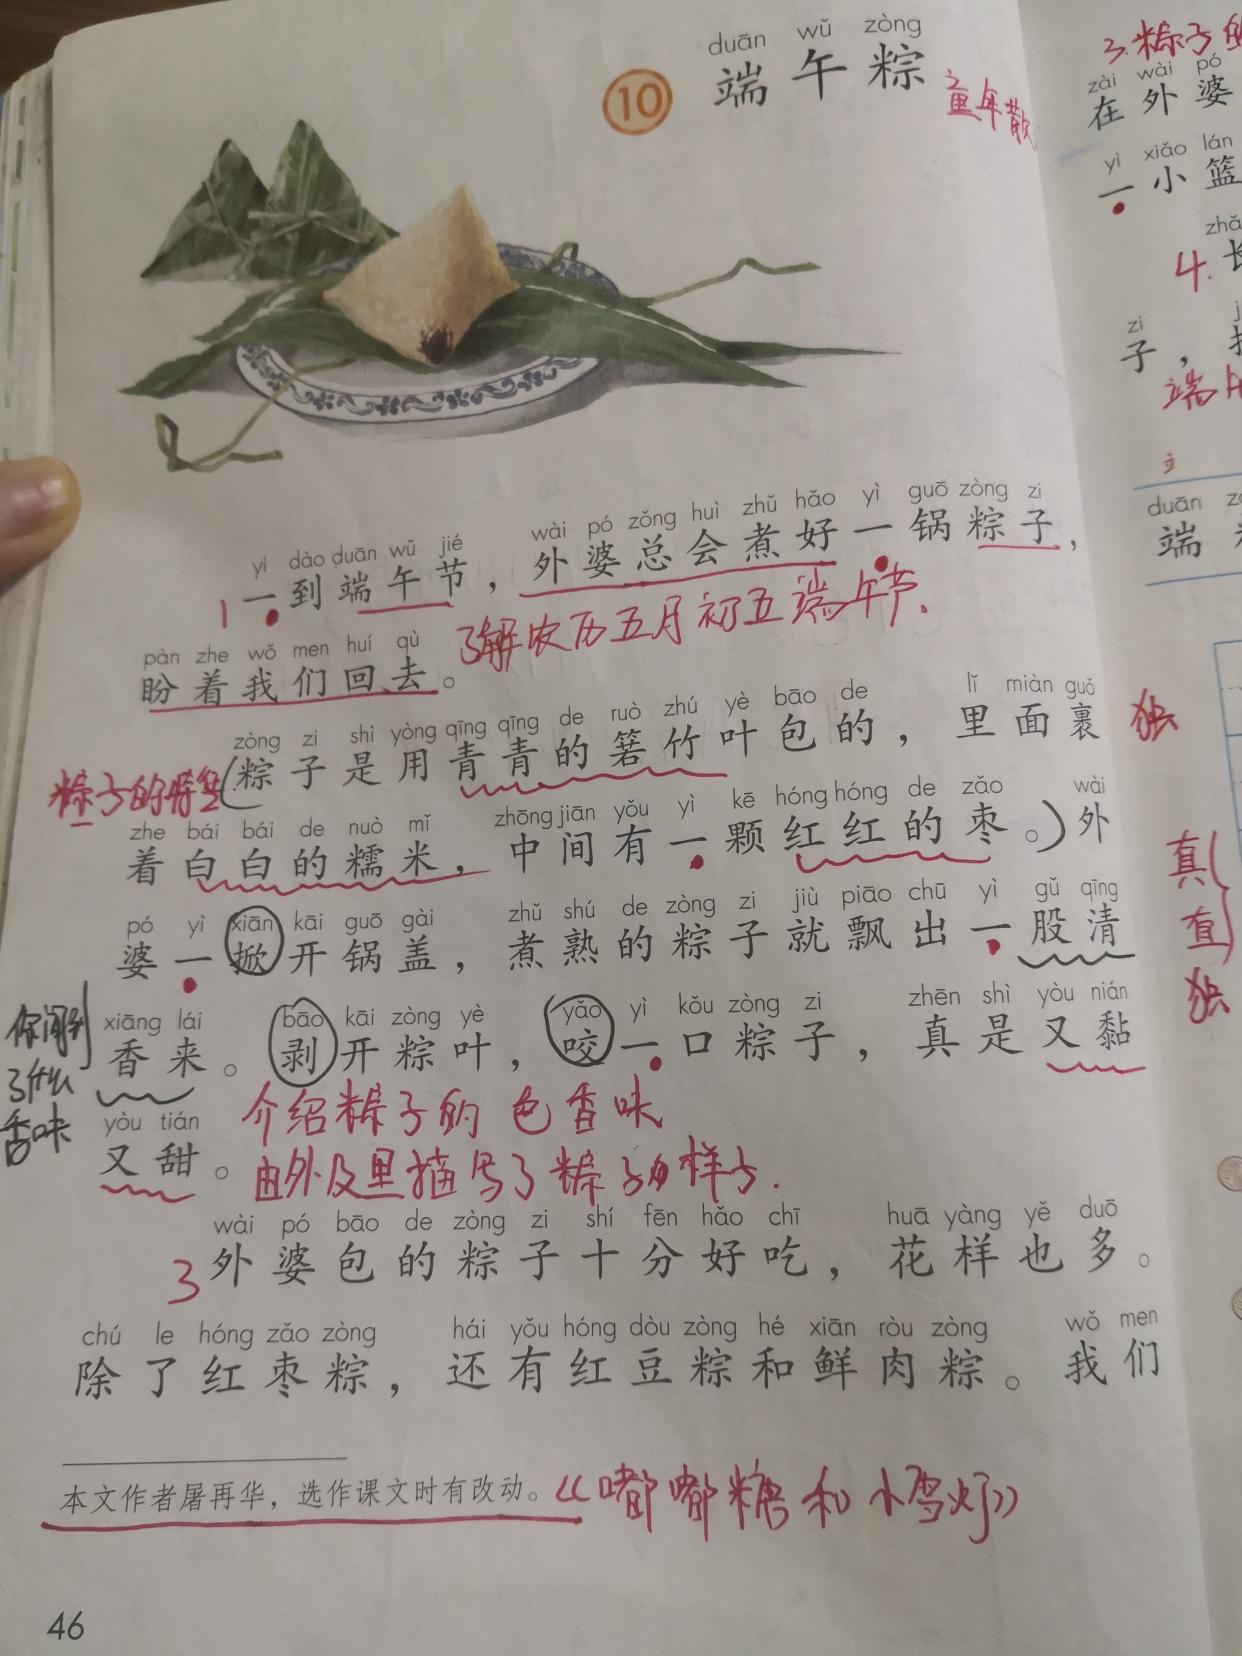 duān wǔ zòng
10 端午粽
童年散
yí dào duān wǔ jié wài pó zǒng huì zhǔ hǎo yì guō zòng zi
1 一到端午节，外婆总会煮好一锅粽子，
了解农历五月初五端午节.
pàn zhe wǒ men huí qù
盼着我们回去。
zòng zi shì yòng qīng qīng de ruò zhú yè bāo de lǐ miàn guǒ
粽子的特点(粽子是用青青的箬竹叶包的，里面裹
zhe bái bái de nuò mǐ zhōng jiān yǒu yì kē hóng hóng de zǎo wài
着白白的糯米，中间有一颗红红的枣。)外
pó yì xiān kāi guō gài zhǔ shú de zòng zi jiù piāo chū yì gǔ qīng
婆一掀开锅盖，煮熟的粽子就飘出一股清
你闻到
了什么
香味
xiāng lái bāo kāi zòng yè yǎo yì kǒu zòng zi zhēn shì yòu nián
香来。剥开粽叶，咬一口粽子，真是又黏
yòu tián
又甜。
介绍粽子的色香味
由外及里描写了粽子的样子.
wài pó bāo de zòng zi shí fēn hǎo chī huā yàng yě duō
3 外婆包的粽子十分好吃，花样也多。
chú le hóng zǎo zòng hái yǒu hóng dòu zòng hé xiān ròu zòng wǒ men
除了红枣粽，还有红豆粽和鲜肉粽。我们
本文作者屠再华，选作课文时有改动。《嘟嘟糖和小雪灯》
46
3.粽子的
zài wài pó
在外婆
yì xiǎo lán
一小篮
4.长
zi
子，
端午
duān
端
独
真
直
独